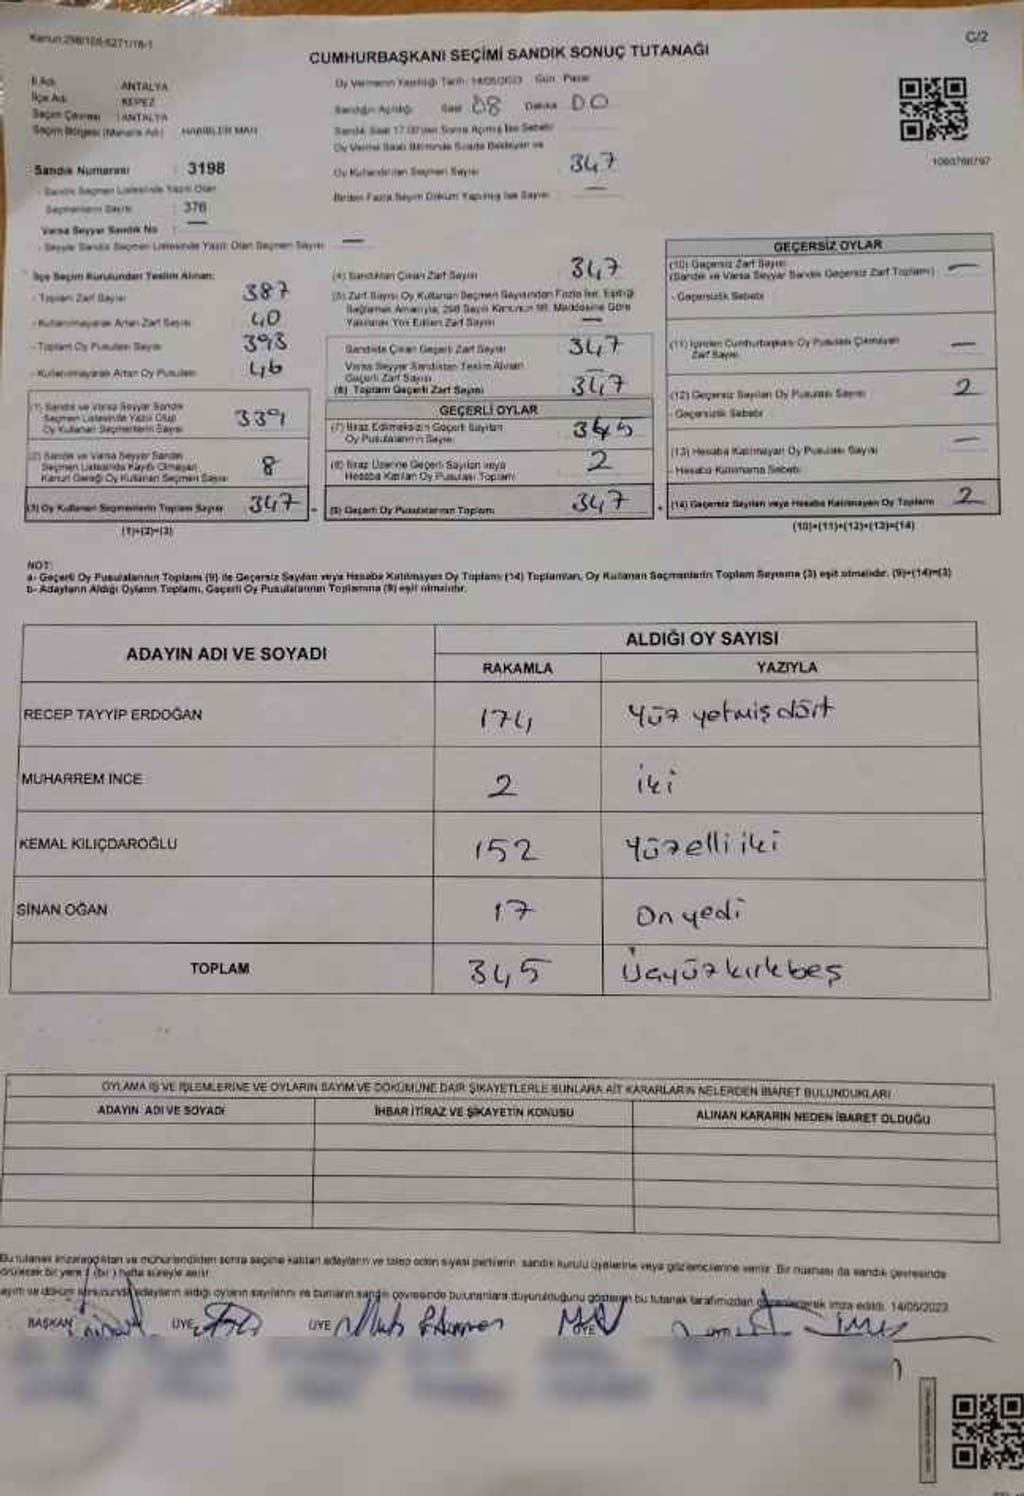 Kanun:298/105-6271/16-1
C/2
CUMHURBAŞKANI SEÇİMİ SANDIK SONUÇ TUTANAĞI
İl Adı : ANTALYA
İlçe Adı : KEPEZ
Seçim Çevresi : ANTALYA
Seçim Bölgesi (Mahalle Adı) HABİBLER MAH
Sandık Numarası : 3198
- Sandık Seçmen Listesinde Yazılı Olan
Seçmenlerin Sayısı : 376
Varsa Seyyar Sandık No : —
- Seyyar Sandık Seçmen Listesinde Yazılı Olan Seçmen Sayısı —
Oy Vermenin Yapıldığı Tarih: 14/05/2023 Gün: Pazar
Sandığın Açıldığı Saat 08 Dakika 00
Sandık Saat 17.00'den Sonra Açılmış İse Sebebi
Oy Verme Saati Bitiminde Sırada Bekleyen ve
Oy Kullandırılan Seçmen Sayısı 347
Birden Fazla Sayım Döküm Yapılmış İse Sayısı —
1060766797
İlçe Seçim Kurulundan Teslim Alınan:
- Toplam Zarf Sayısı 387
- Kullanılmayarak Artan Zarf Sayısı 40
- Toplam Oy Pusulası Sayısı 393
- Kullanılmayarak Artan Oy Pusulası 46
(1) Sandık ve Varsa Seyyar Sandık
Seçmen Listesinde Yazılı Olup
Oy Kullanan Seçmenlerin Sayısı 339
(2) Sandık ve Varsa Seyyar Sandık
Seçmen Listesinde Kaydı Olmayan
Kanun Gereği Oy Kullanan Seçmen Sayısı 8
(3) Oy Kullanan Seçmenlerin Toplam Sayısı 347
(1)+(2)=(3)
(4) Sandıktan Çıkan Zarf Sayısı 347
(5) Zarf Sayısı Oy Kullanan Seçmen Sayısından Fazla İse, Eşitliği
Sağlamak Amacıyla, 298 Sayılı Kanunun 98. Maddesine Göre
Yakılarak Yok Edilen Zarf Sayısı —
Sandıkta Çıkan Geçerli Zarf Sayısı 347
Varsa Seyyar Sandıktan Teslim Alınan
Geçerli Zarf Sayısı —
(6) Toplam Geçerli Zarf Sayısı 347
GEÇERLİ OYLAR
(7) İtiraz Edilmeksizin Geçerli Sayılan
Oy Pusulalarının Sayısı 345
(8) İtiraz Üzerine Geçerli Sayılan veya
Hesaba Katılan Oy Pusulası Toplamı 2
(9) Geçerli Oy Pusulalarının Toplamı 347
GEÇERSİZ OYLAR
(10) Geçersiz Zarf Sayısı
(Sandık ve Varsa Seyyar Sandık Geçersiz Zarf Toplamı) —
- Geçersizlik Sebebi
(11) İçinden Cumhurbaşkanı Oy Pusulası Çıkmayan
Zarf Sayısı —
(12) Geçersiz Sayılan Oy Pusulası Sayısı 2
- Geçersizlik Sebebi
(13) Hesaba Katılmayan Oy Pusulası Sayısı —
- Hesaba Katılmama Sebebi
(14) Geçersiz Sayılan veya Hesaba Katılmayan Oy Toplamı 2
(10)+(11)+(12)+(13)=(14)
NOT:
a- Geçerli Oy Pusulalarının Toplamı (9) ile Geçersiz Sayılan veya Hesaba Katılmayan Oy Toplamı (14) Toplamları, Oy Kullanan Seçmenlerin Toplam Sayısına (3) eşit olmalıdır. (9)+(14)=(3)
b- Adayların Aldığı Oyların Toplamı, Geçerli Oy Pusulalarının Toplamına (9) eşit olmalıdır.
ADAYIN ADI VE SOYADI
ALDIĞI OY SAYISI
RAKAMLA YAZIYLA
RECEP TAYYİP ERDOĞAN 174 Yüz yetmiş dört
MUHARREM İNCE 2 iki
KEMAL KILIÇDAROĞLU 152 Yüzelli iki
SİNAN OĞAN 17 On yedi
TOPLAM 345 Üçyüz kırk beş
OYLAMA İŞ VE İŞLEMLERİNE VE OYLARIN SAYIM VE DÖKÜMÜNE DAİR ŞİKAYETLERLE BUNLARA AİT KARARLARIN NELERDEN İBARET BULUNDUKLARI
ADAYIN ADI VE SOYADI İHBAR İTİRAZ VE ŞİKAYETİN KONUSU ALINAN KARARIN NEDEN İBARET OLDUĞU
Bu tutanak imzalandıktan ve mühürlendikten sonra seçime katılan adayların ve talep eden siyasi partilerin, sandık kurulu üyelerine veya gözlemcilerine verilir. Bir nüshası da sandık çevresinde
görülecek bir yere 1 (bir) hafta süreyle asılır.
ayım ve döküm sonucunda adayların aldığı oyların sayılarını ve bunların sandık çevresinde bulunanlara duyurulduğunu gösteren bu tutanak tarafımızdan düzenlenerek imza edildi. 14/05/2023
BAŞKAN ÜYE ÜYE ÜYE